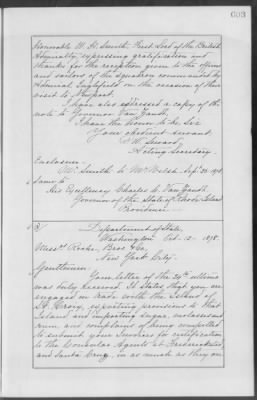 603
Honorable W. H. Smith, First Lord of the British
Admiralty, expressing gratification and
thanks for the reception given to the officers
and sailors of the squadron commanded by
Admiral Inglefield on the occasion of their
visit to Newport.
I have also addressed a copy of the
note to Governor Van Zandt.
I have the honor to be, Sir
Your obedient servant
F. W. Seward,
Acting Secretary
Enclosure.
Mr Smith to Mr Welsh. Sep. 1878
Same to
His Excellency Charles C. Van Zandt
Governor of the State of Rhode Island
Providence
Department of State,
Washington Oct. 12 1878.
Messrs Bros & Co.
New York City.
Gentlemen:
Your letter of the 24th ultimo
was duly received. It states that you are
engaged in trade with the Island of
St. Croix, exporting provisions to that
Island and importing sugar, molasses and
rum, and complains of being compelled
to submit your Invoices for certification
to the Consular Agents at Frederiksted
and Santa Cruz, in as much as they on